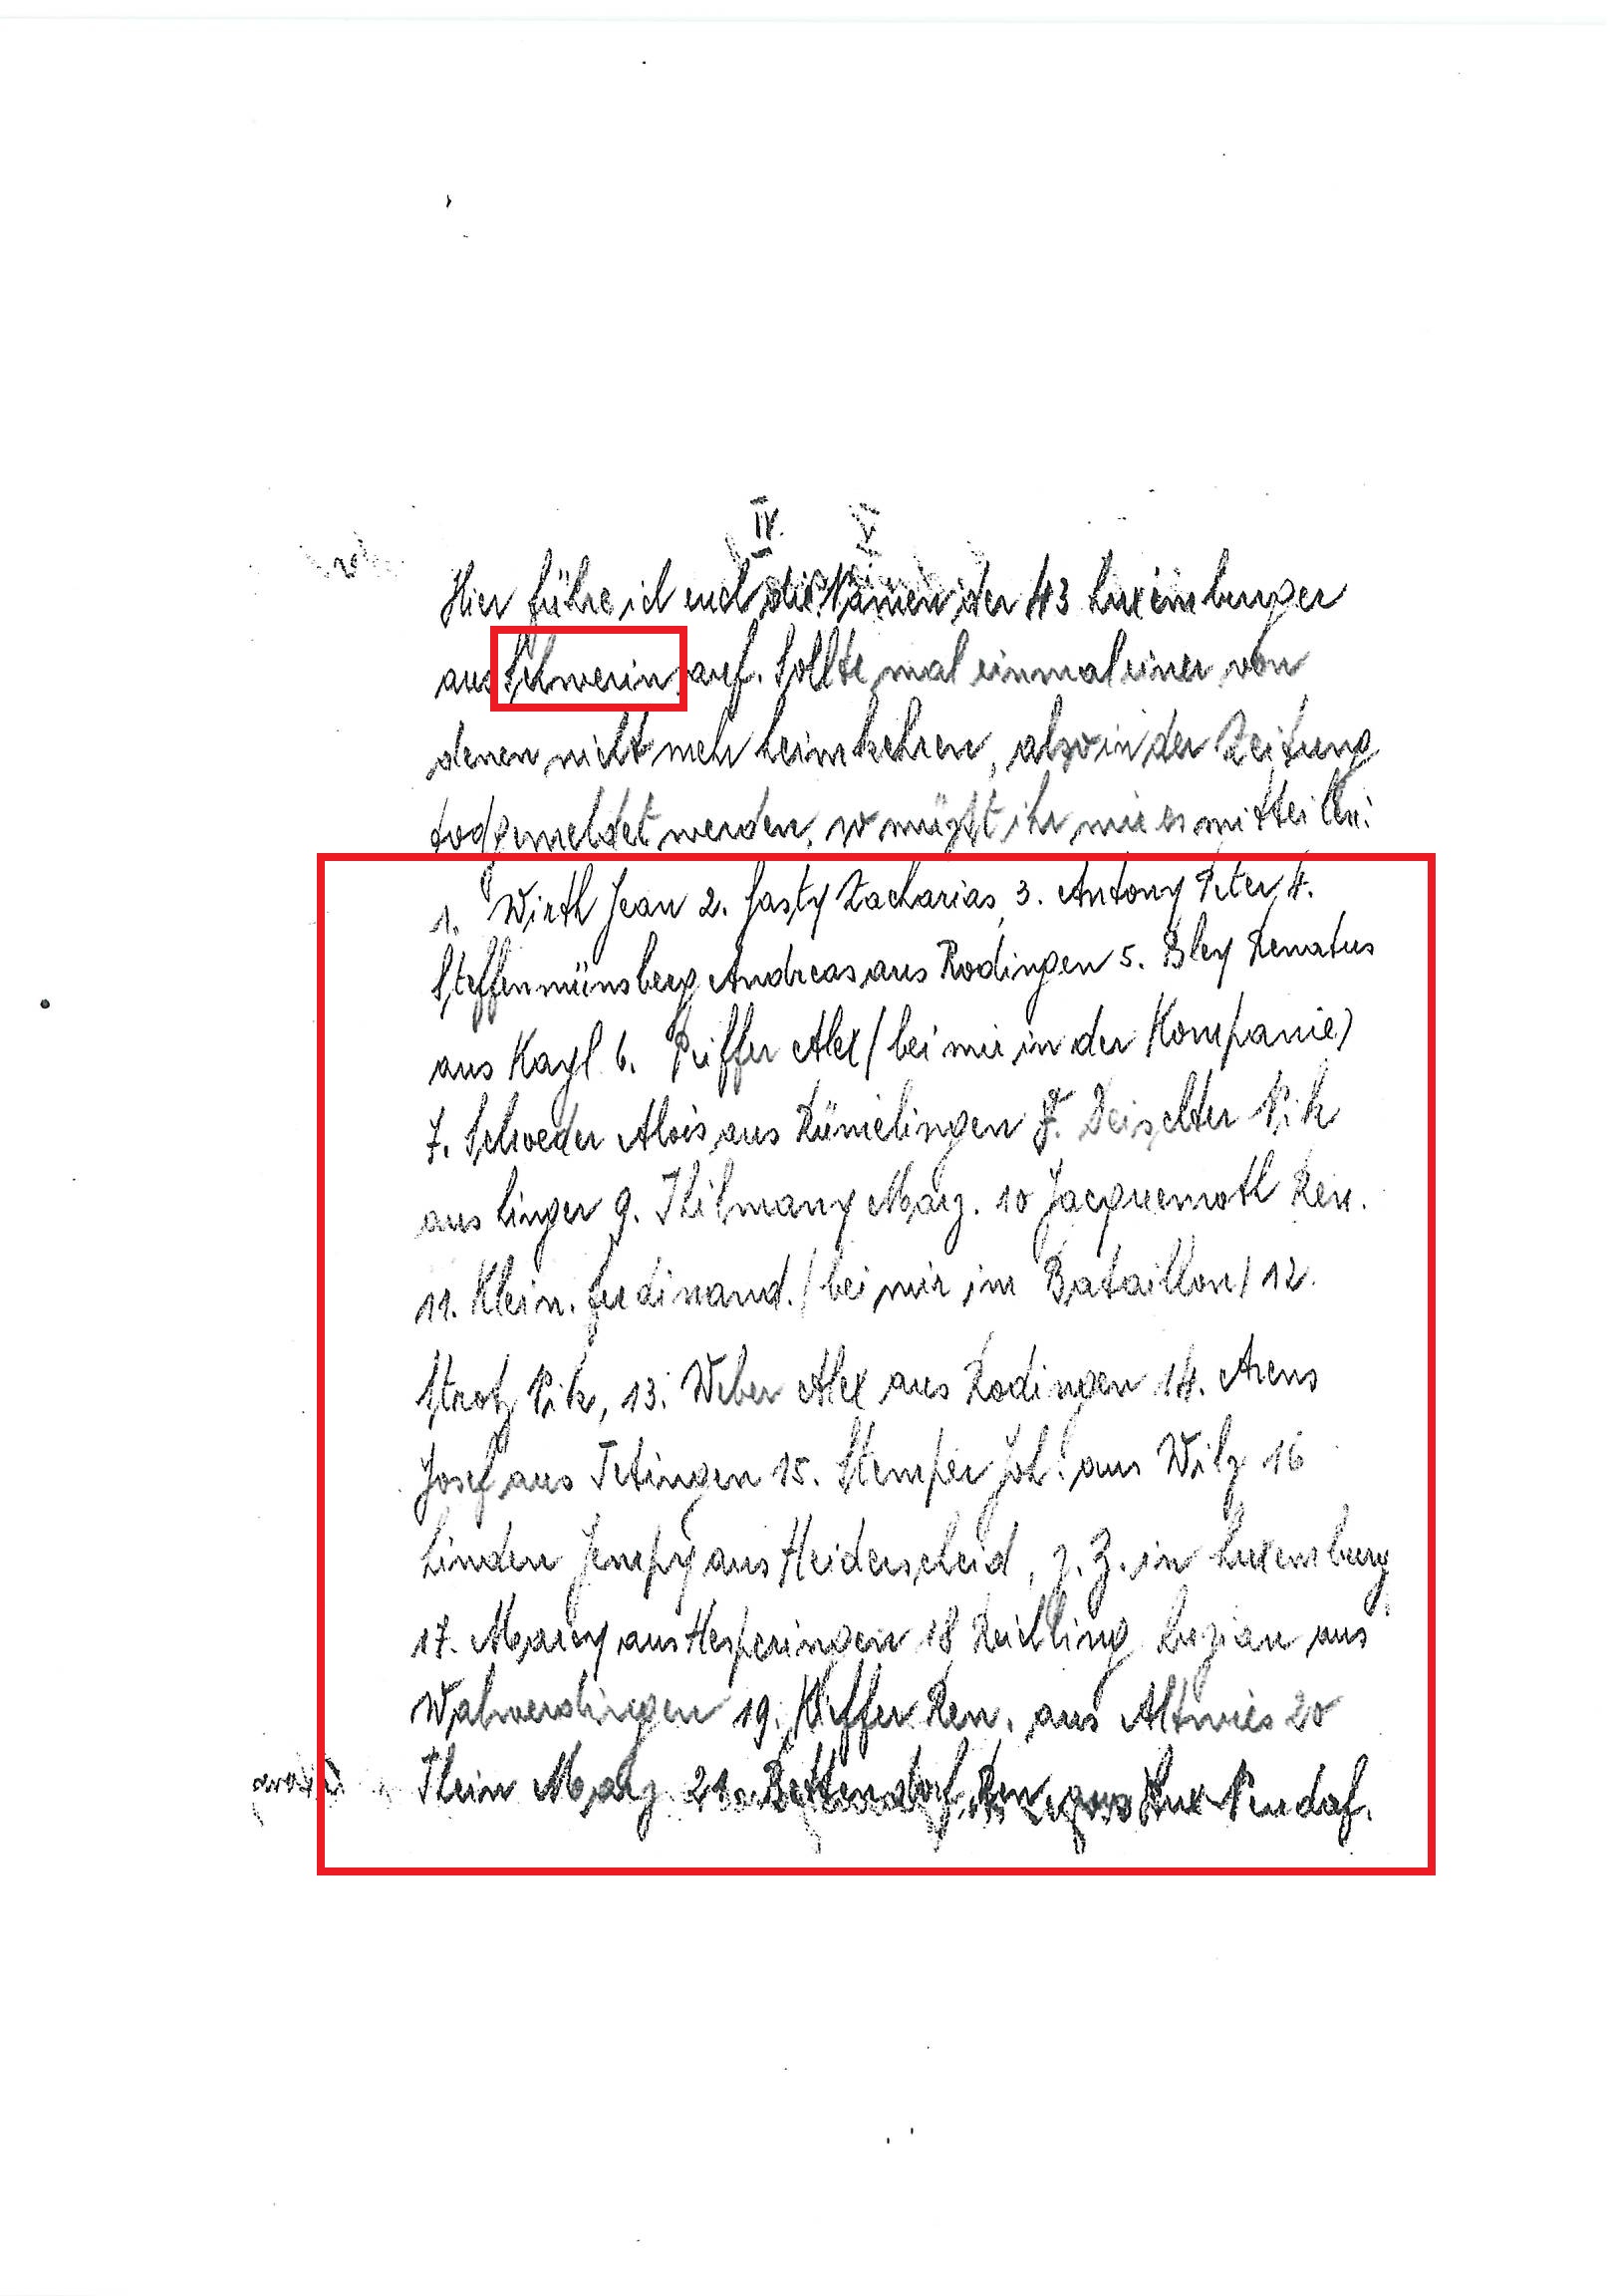 IV.
Hier führe ich euch die Namen der 43 Luxemburger
aus Schwerin auf. Sollte mal einmal einer von
denen nicht mehr heimkehren, also in der Zeitung
todgemeldet werden, so müßt ihr mir es mitteilen:
1. Wirth Jean 2. Gasty Zacharias, 3. Antony Peter, 4.
Steffenmünsberg Andreas aus Rodingen 5. Bley Renatus
aus Kayl 6. Peiffer Alex (bei mir in der Kompanie)
7. Schroeder Alois aus Rümelingen 8. Deischter Nik
aus Linger 9. Thilmany Marz. 10 Jacquemoth Ren.
11. Klein. Ferdinand. (bei mir im Bataillon) 12.
Strotz Nik, 13. Weber Alex aus Rodingen 14. Arens
Josef aus Tetingen 15. Stemper Joh. aus Wilz 16
Linden Jempy aus Heiderscheid, z. Z. in Luxemburg
17. Marcy aus Hesperingen 18 Reichling Luzian aus
Walverdingen 19. Kieffer Ren. aus Altwies 20
Thein Marz. 21. Bettendorf Ren. aus Lux-Neudof.